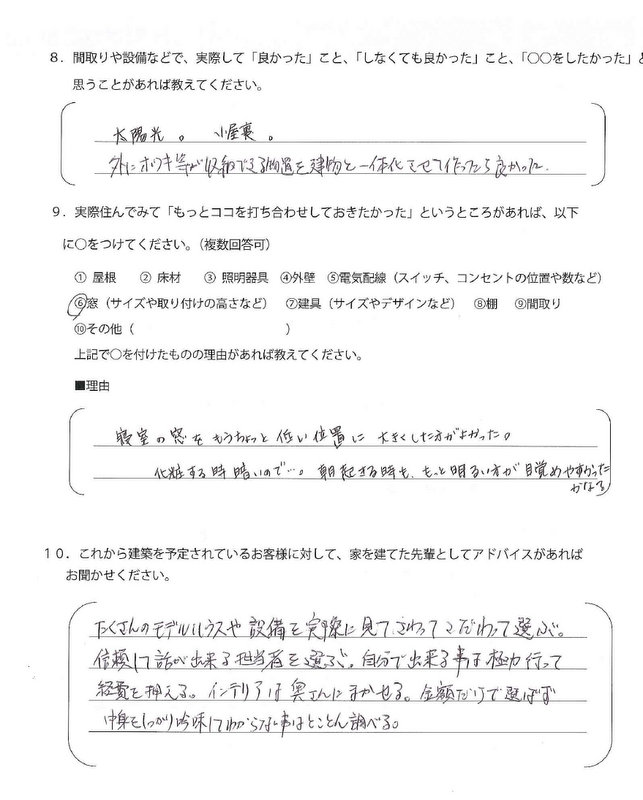 ８．間取りや設備などで、実際して「良かった」こと、「しなくても良かった」こと、「〇〇をしたかった」と
思うことがあれば教えてください。
太陽光。 小屋裏。
外にホウキ等が収納できる物置を建物と一体化させて作ったら良かった。
９．実際住んでみて「もっとココを打ち合わせしておきたかった」というところがあれば、以下
に〇をつけてください。（複数回答可）
① 屋根 ② 床材 ③ 照明器具 ④外壁 ⑤電気配線（スイッチ、コンセントの位置や数など）
⑥窓（サイズや取り付けの高さなど） ⑦建具（サイズやデザインなど） ⑧棚 ⑨間取り
⑩その他（ ）
上記で〇を付けたものの理由があれば教えてください。
■理由
寝室の窓をもうちょっと低い位置に大きくした方がよかった。
化粧する時暗いので…。朝起きる時も、もっと明るい方が目覚めやすかった
かなぁ
１０．これから建築を予定されているお客様に対して、家を建てた先輩としてアドバイスがあれば
お聞かせください。
たくさんのモデルハウスや設備を実際に見て、さわってこだわって選ぶ。
信頼して話が出来る担当者を選ぶ。自分で出来る事は極力行って
経費を押える。インテリアは奥さんにまかせる。金額だけで選ばず
中身をしっかり吟味してわからない事はとことん調べる。